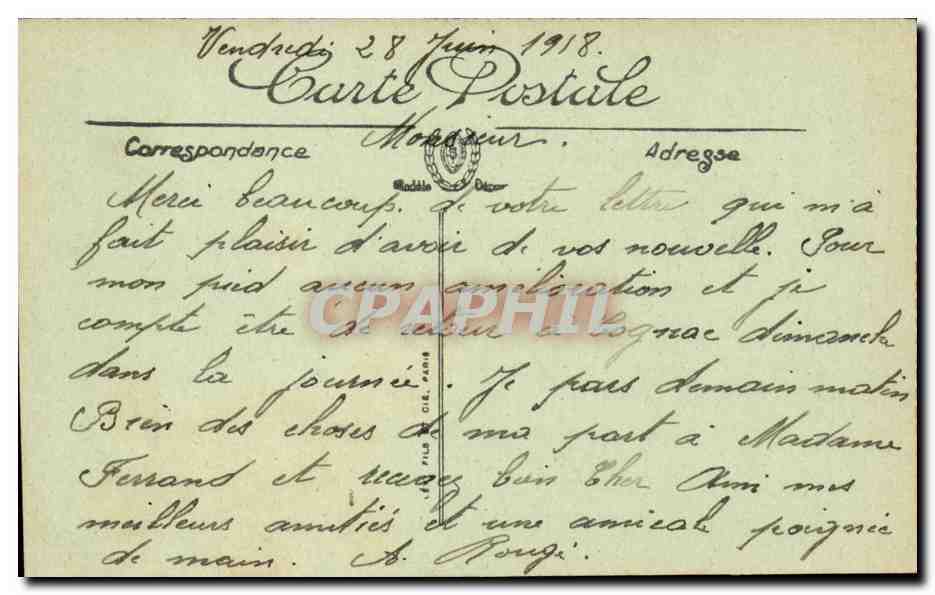 Vendredi 28 Juin 1918.
Carte Postale
Monsieur.
Correspondance
Adresse
Modèle Déposé
Merci beaucoup de votre lettre qui m'a
fait plaisir d'avoir de vos nouvelle. Pour
mon pied aucun amélioration et je
CPAPHIL
compte être de retour a Cognac dimanche
dans la journée. Je pars demain matin
Bien des choses de ma part à Madame
Ferrand et recevez bien Cher Ami mes
meilleurs amitiés et une amicale poignée
de main. A. Rougé.
FILS CIE, PARIS